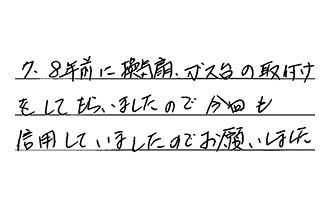 7、8年前に換気扇、ガス台の取付け
をしてもらいましたので今回も
信用していましたのでお願いしました